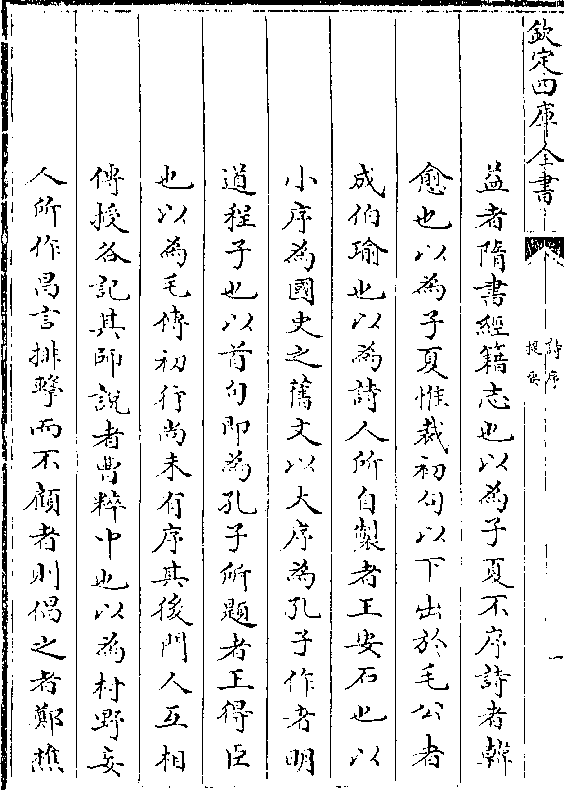 欽定四庫全書
詩序
提要
一
益者隋書經籍志也以為子夏不序詩者韓
愈也以為子夏惟裁初句以下出於毛公者
成伯瑜也以為詩人所自製者王安石也以
小序為國史之舊文以大序為孔子作者明
道程子也以首句即為孔子所題者王得臣
也以為毛傳初行尚未有序其後門人互相
傳授各記其師說者曹粹中也以為村野妄
人所作昌言排擊而不顧者則倡之者鄭樵